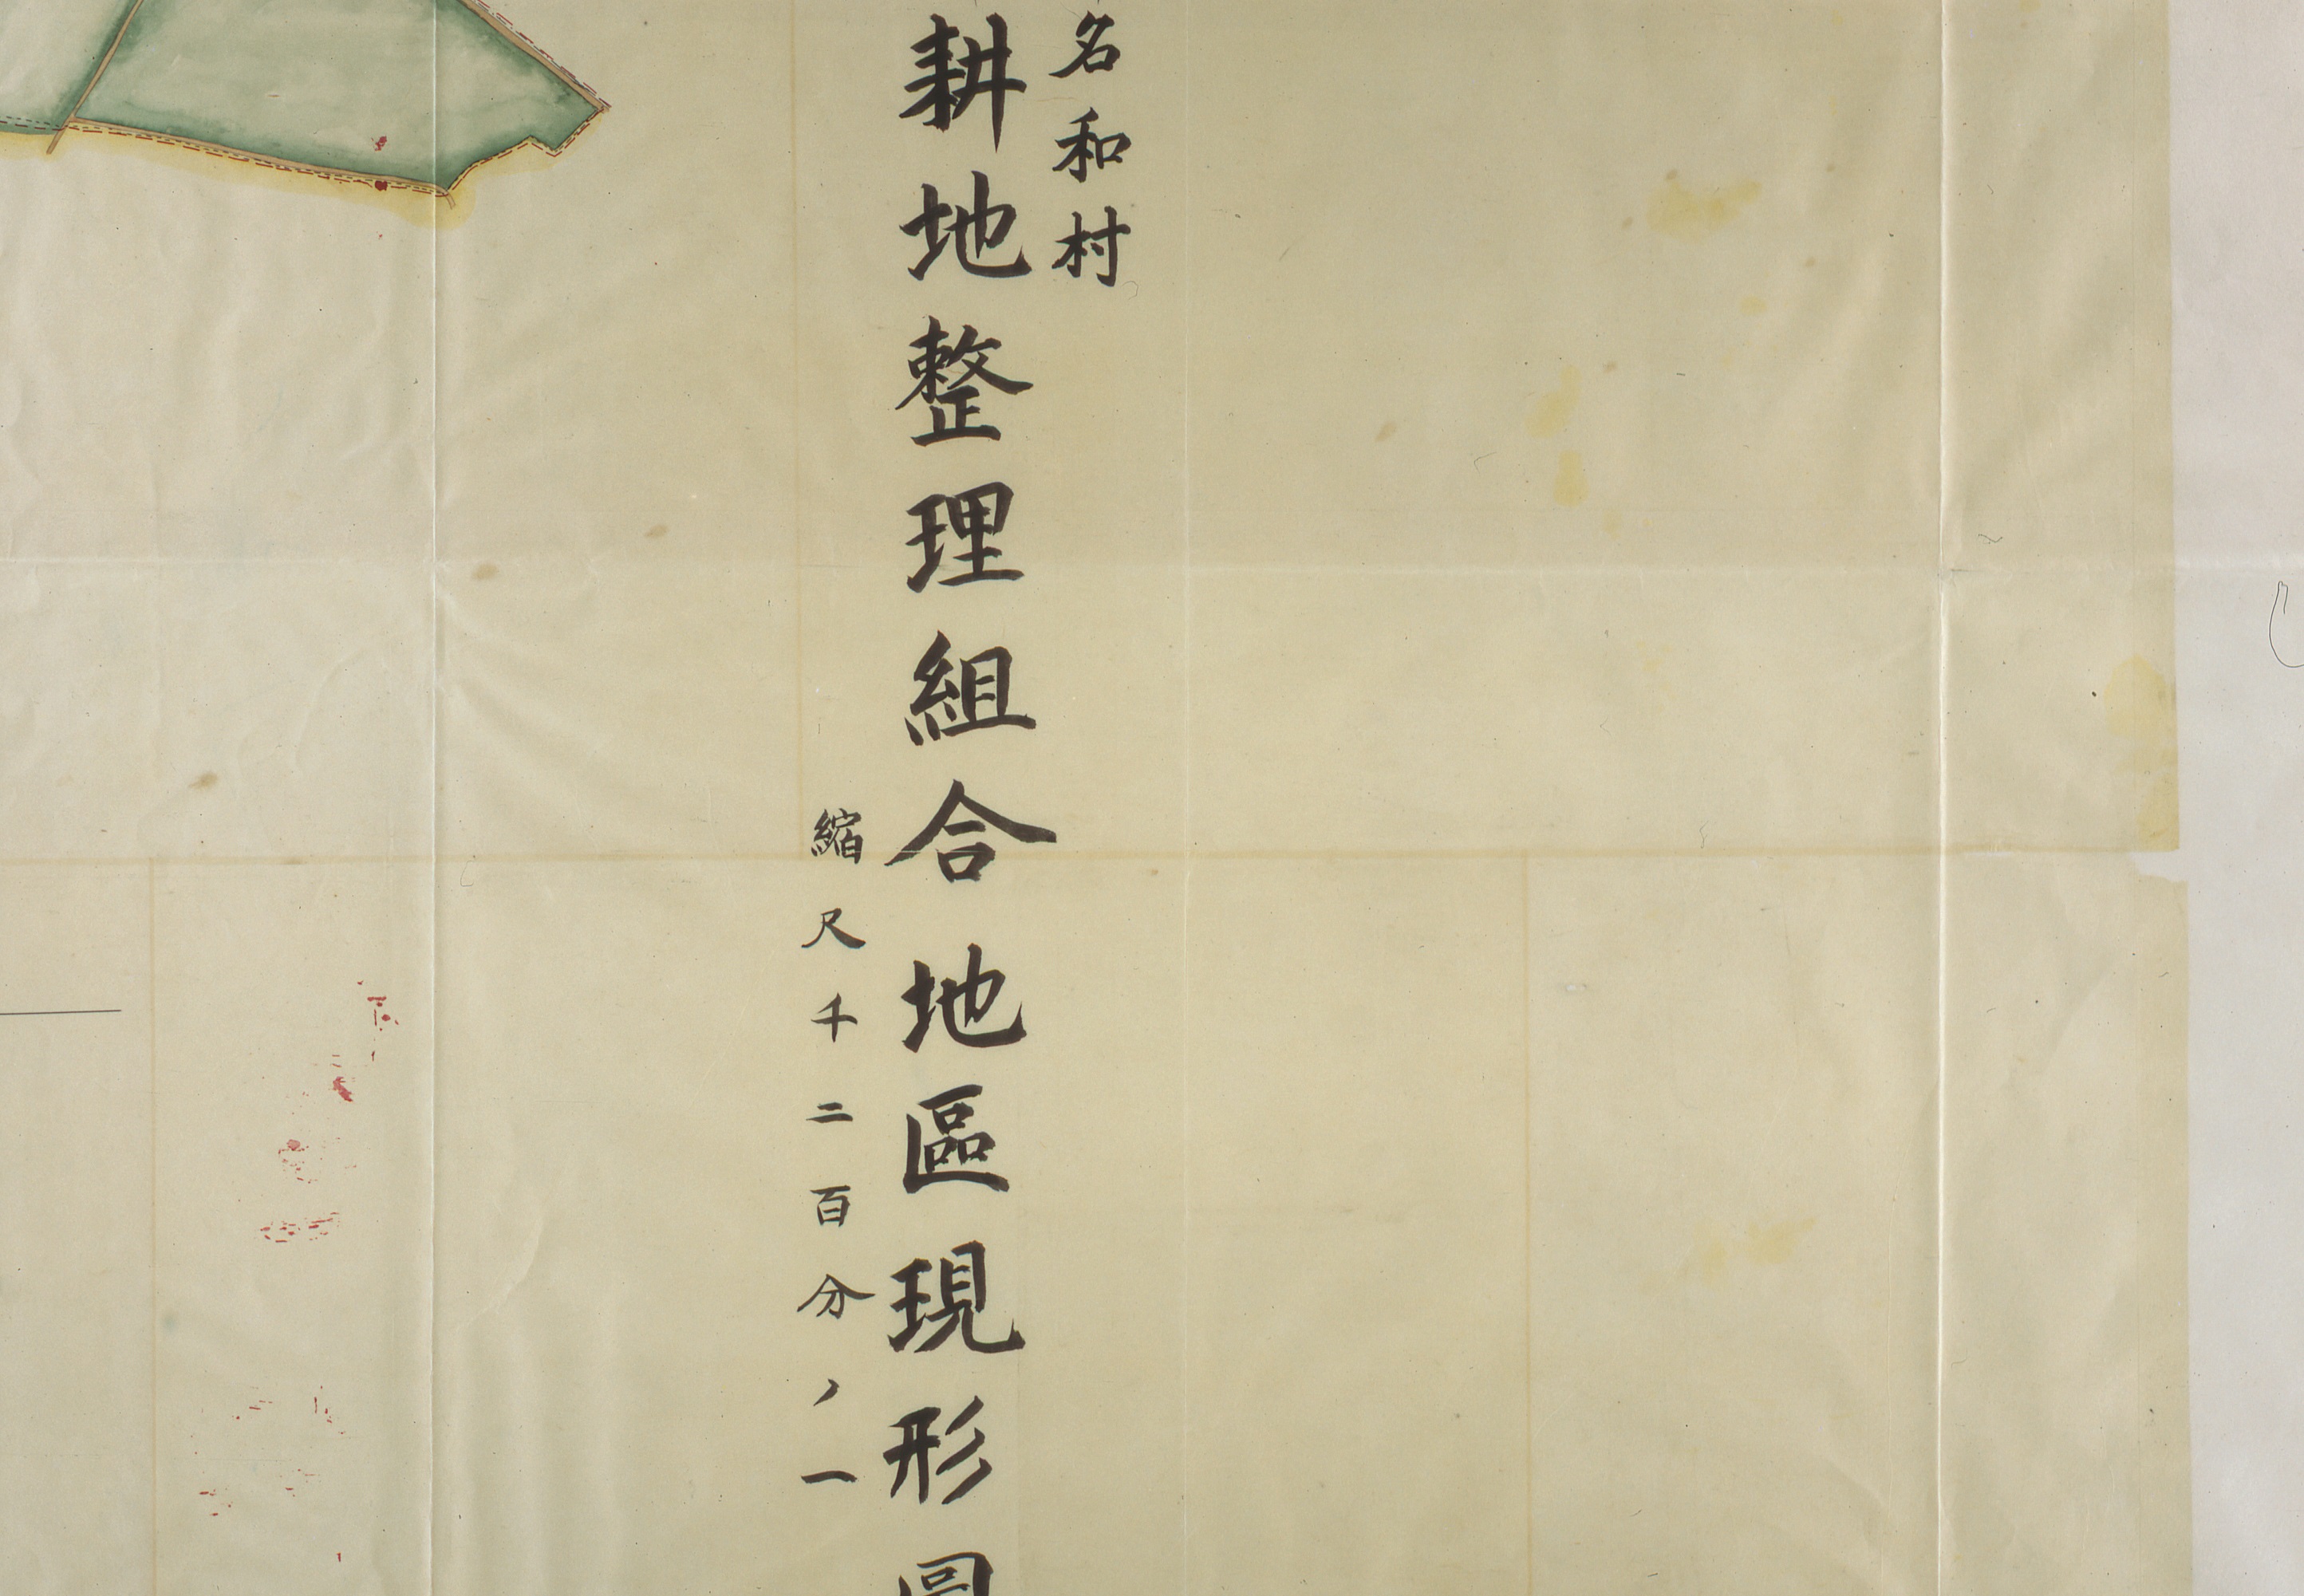 名和村
耕地整理組合地區現形圖
縮尺千二百分ノ一